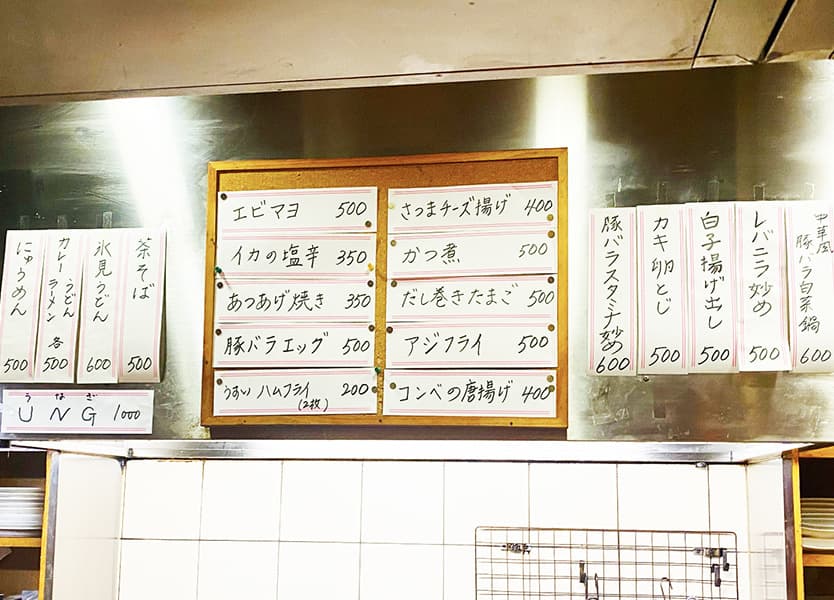 茶そば 500
氷見うどん 600
カレー うどん ラーメン 各 500
にゅうめん 500
うなぎ
UNG 1000
エビマヨ 500
イカの塩辛 350
あつあげ焼き 350
豚バラエッグ 500
うすいハムフライ 200
(2枚)
さつまチーズ揚げ 400
かつ煮 500
だし巻きたまご 500
アジフライ 500
コンベの唐揚げ 400
中華風
豚バラ白菜鍋 600
レバニラ炒め 500
白子揚げ出し 500
カキ卵とじ 500
豚バラスタミナ炒め 600